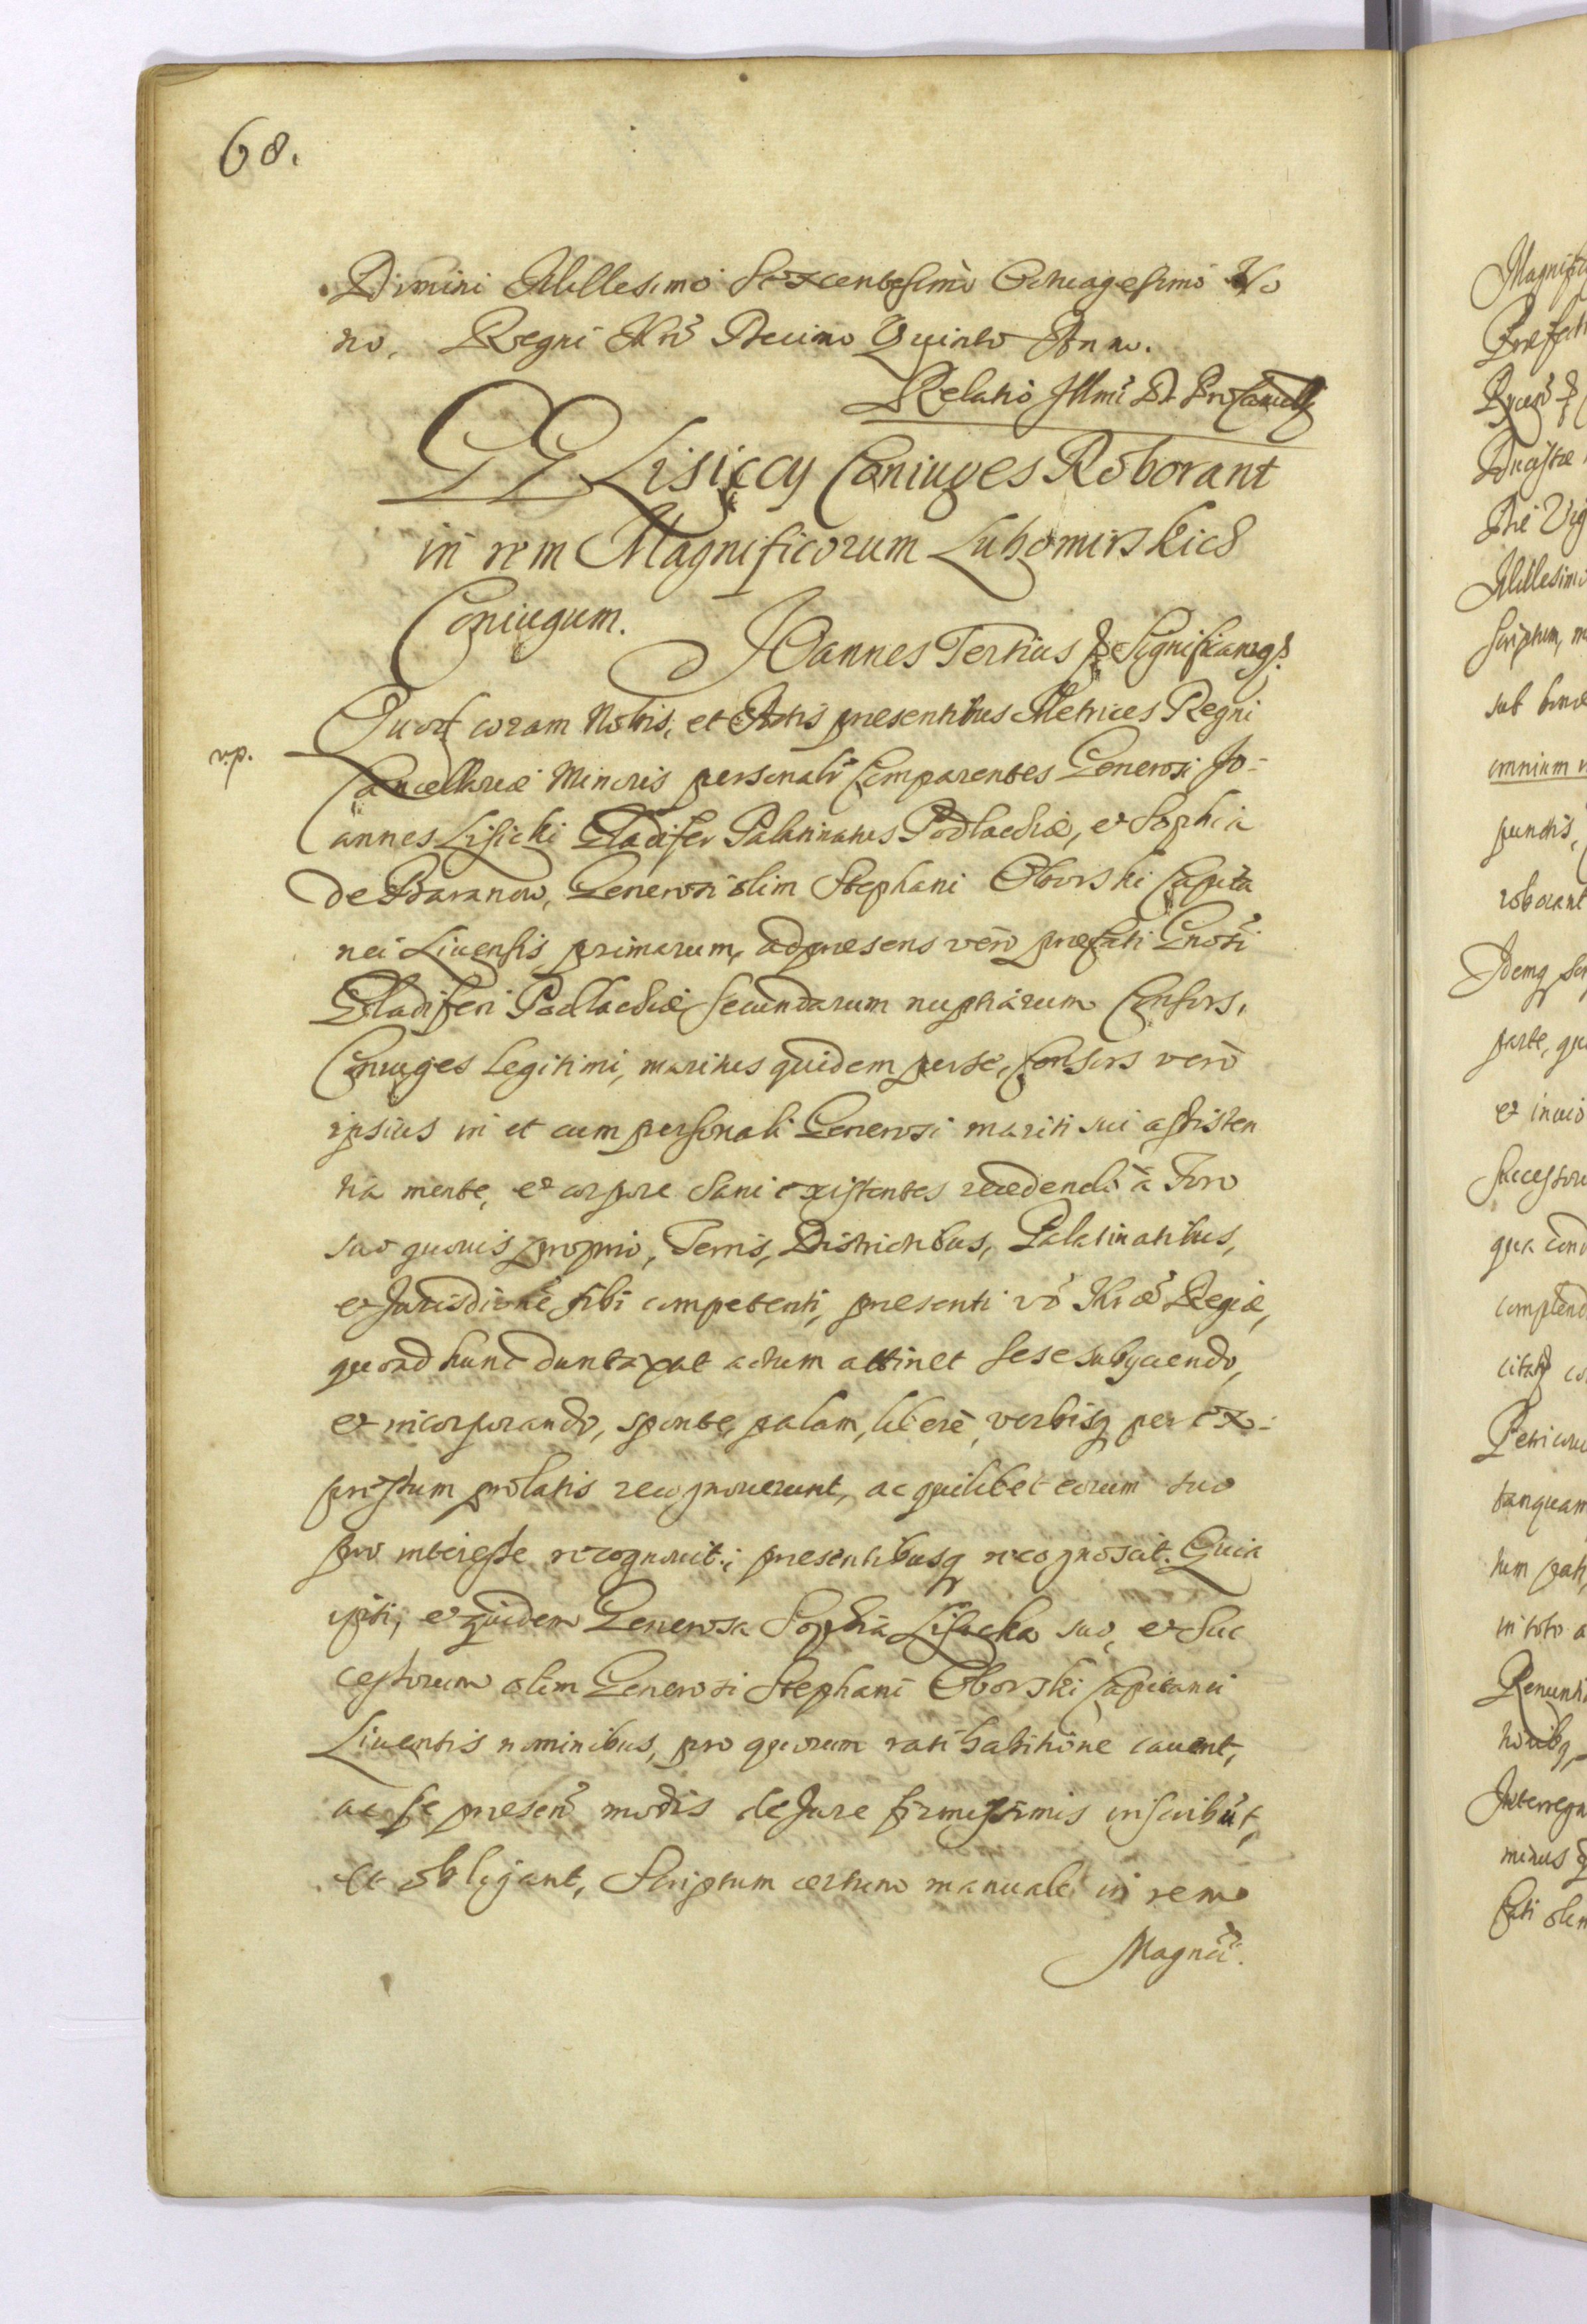 68.
Domini Millesimo Sexcentesimo Octuagesimo No
no, Regni Nri Decimo Quinto Anno.
Relatio Illmi D. Procancell
GG Lisiccy Coniuges Roborant
in rem Magnificorum Lubomirskich
Coniugum.
Joannes Tertius & Significamqs.
Quod coram Nobis, et Actis presentibus Metrices Regni
vp.
Cancellariæ Minoris personalr Comparentes Generosi Jo-
annes Lisicki Gladifer Palatinatus Podlachiæ, et Sophia
de Baranow, Generosi olim Stephani Oborski Capita
nei Livensis primarum, ad presens verò præfati Gnosi
Gladiferi Podlachiæ secundarum nuptiarum Consors,
Coniuges Legitimi, maritus quidem per se, Consors verò
ipsius in et cum personali Generosi mariti sui assisten
tia mente, et corpore sani existentes recedendo à Foro
suo quovis proprio, Terris, Districtibus, Palatinatibus,
et Jurisdictione sibi competenti, presenti vo Nræ Regiæ,
quo ad hunc duntaxat actum attinet sese subyciendo,
et incorporando, sponte, palam, liberè, verbisq per ex-
pressum prolatis recognoverunt, ac quilibet eorum suo
pro interesse recognovit; presentibusq recognoscit. Quia
ipsi, et quidem Generosa Sophia Lisicka suo, et Suc
cessorum olim Generosi Stephani Oborski Capitanei
Livensis nominibus, pro quorum ratihabitione cavent,
ac se presen modis de Jure firmissimis inscribut,
et obligant, Scriptum certum manuale in rem
Magnci.